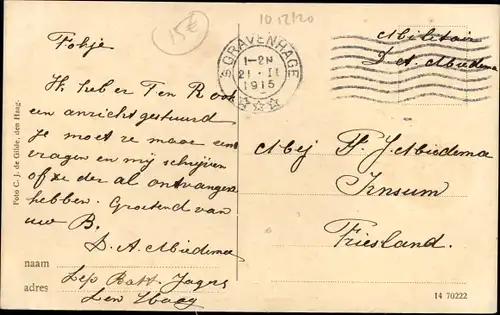 15€
10 12/20
'S GRAVENHAGE
1-2N
21·II
1915
Militair
D A Miedema
Fokje
W. heb er Ten Rook
een anzicht gestuurd
je moet ze maar eens
vragen en mij schrijven
of ze der al ontvangen
hebben. Groetend van
uw B.
D. A. Miedema
naam
adres Lep Batt. Jagers
Den Haag
Mej F. J. Miedema
Jnsum
Friesland.
Foto C. J. de Gilde, den Haag.
14 70222